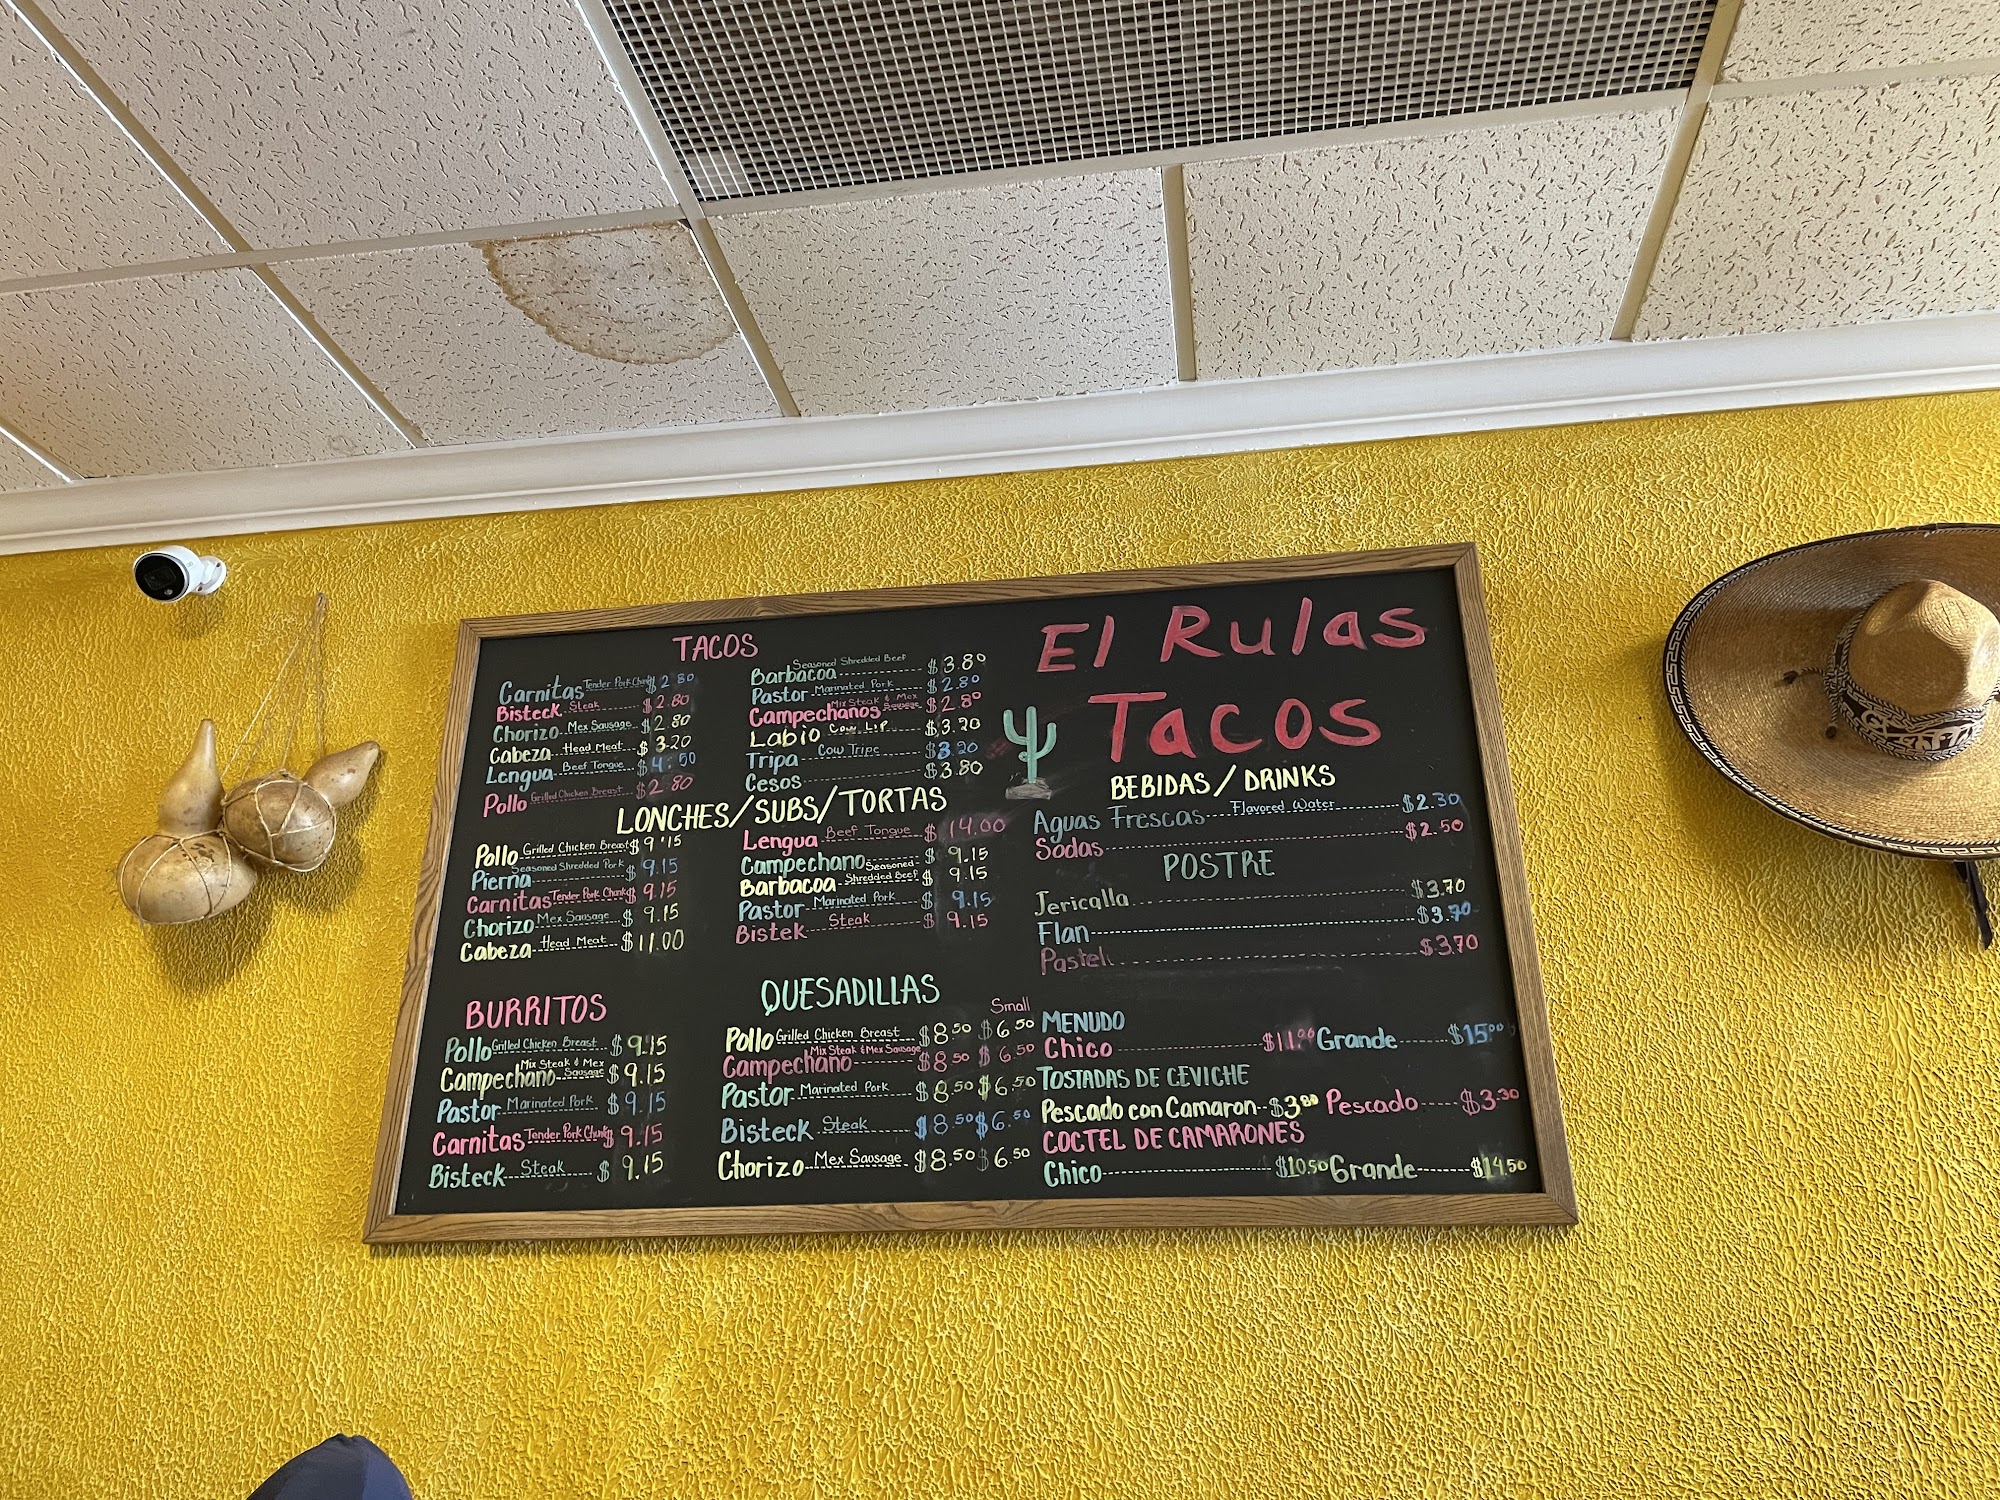 El Rulas
Tacos
TACOS
Carnitas Tender Pork Chunk $2.80
Bisteck Steak $2.80
Chorizo Mex Sausage $2.80
Cabeza Head Meat $3.20
Lengua Beef Tongue $4.50
Pollo Grilled Chicken Breast $2.80
Barbacoa Seasoned Shredded Beef $3.80
Pastor Marinated Pork $2.80
Campechanos Mix Steak & Mex Sausage $2.80
Labio Cow Lip $3.20
Tripa Cow Tripe $3.20
Cesos $3.80
LONCHES/SUBS/TORTAS
Pollo Grilled Chicken Breast $9.15
Pierna Seasoned Shredded Pork $9.15
Carnitas Tender Pork Chunk $9.15
Chorizo Mex Sausage $9.15
Cabeza Head Meat $11.00
Lengua Beef Tongue $14.00
Campechano $9.15
Barbacoa Seasoned Shredded Beef $9.15
Pastor Marinated Pork $9.15
Bistek Steak $9.15
BURRITOS
Pollo Grilled Chicken Breast $9.15
Campechano Mix Steak & Mex Sausage $9.15
Pastor Marinated Pork $9.15
Carnitas Tender Pork Chunk $9.15
Bisteck Steak $9.15
QUESADILLAS
Small
Pollo Grilled Chicken Breast $8.50 $6.50
Campechano Mix Steak & Mex Sausage $8.50 $6.50
Pastor Marinated Pork $8.50 $6.50
Bisteck Steak $8.50 $6.50
Chorizo Mex Sausage $8.50 $6.50
BEBIDAS/DRINKS
Aguas Frescas Flavored Water $2.30
Sodas $2.50
POSTRE
Jericalla $3.70
Flan $3.70
Pastel $3.70
MENUDO
Chico $11.00 Grande $15.00
TOSTADAS DE CEVICHE
Pescado con Camaron $3.80 Pescado $3.30
COCTEL DE CAMARONES
Chico $10.50 Grande $14.50